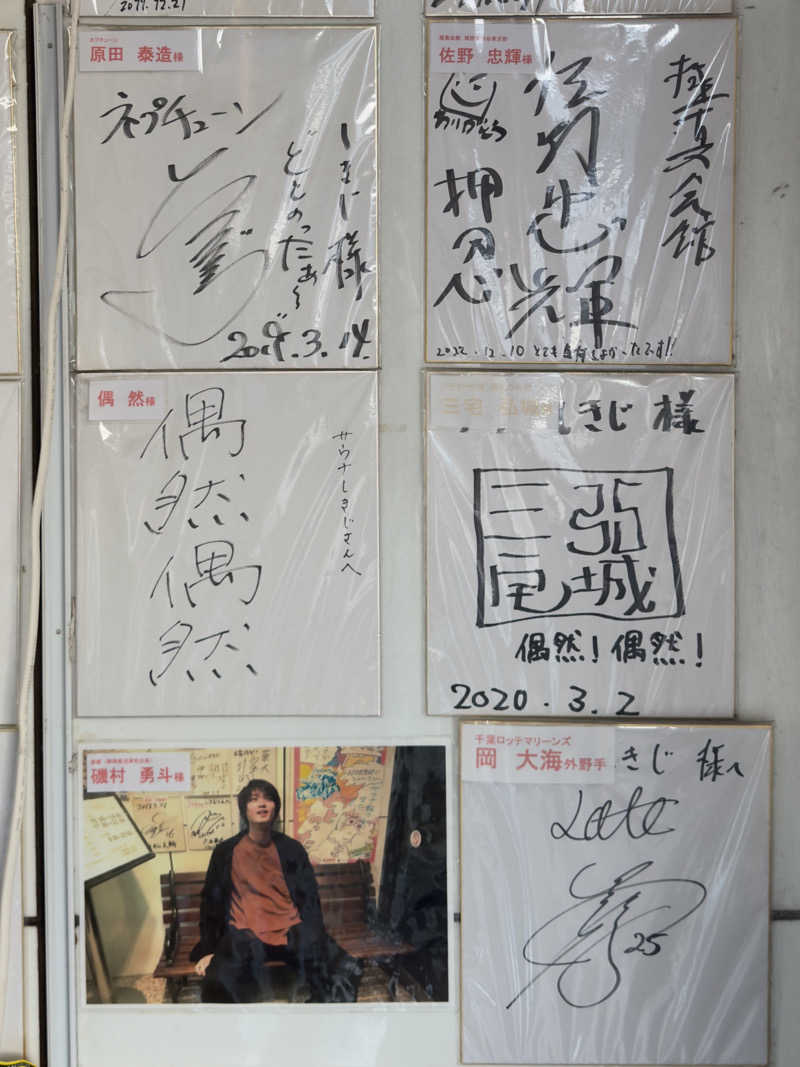 2019.12.21
ネプチューン
原田 泰造様
ネプチューン
しきじ様
ととのったぁ〜
2019.3.14.
佐野 忠輝様
極真会館
佐野忠輝
押忍
ありがとう
2022.12.10
偶 然様
偶然
偶然
サウナしきじさんへ
三宅 弘城
しきじ 様
三宅
弘城
偶然!偶然!
2020.3.2
磯村 勇斗様
千葉ロッテマリーンズ
岡 大海外野手
きじ 様へ
Lotte
25